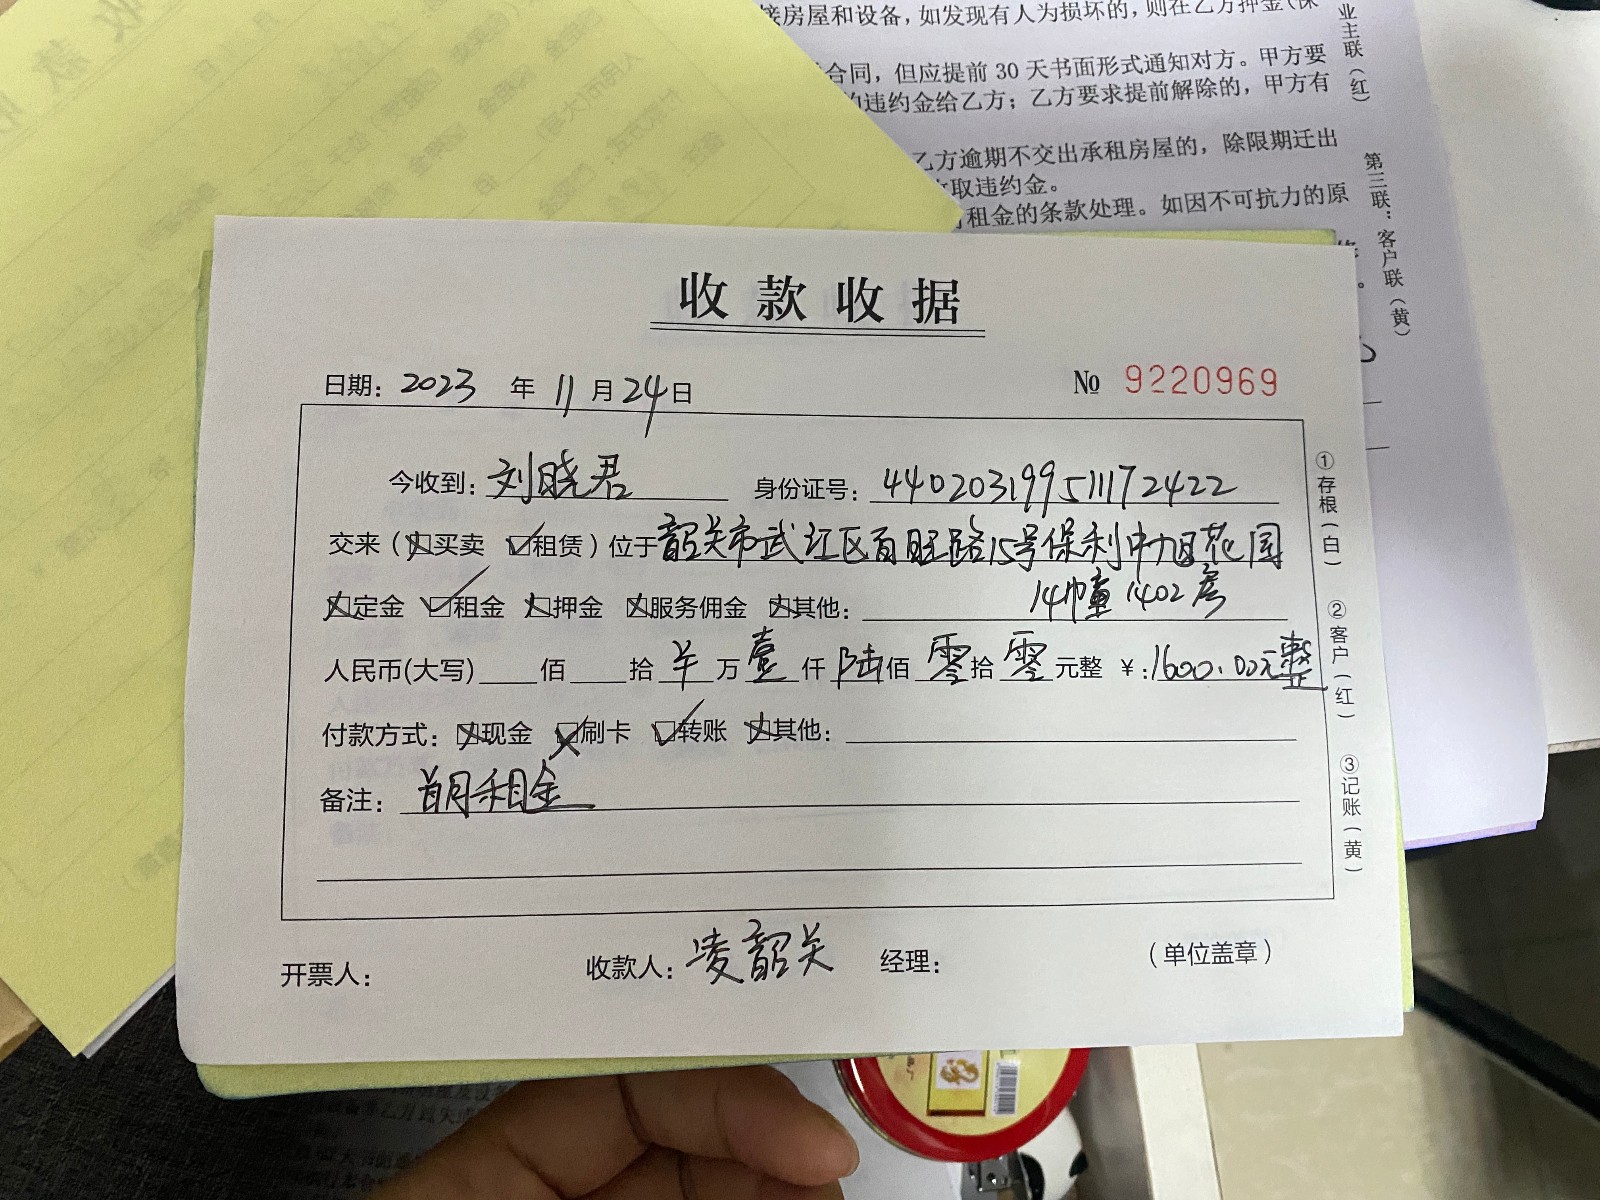 接房屋和设备，如发现有人为损坏的，则在乙方押金（保
合同，但应提前 30 天书面形式通知对方。甲方要
违约金给乙方；乙方要求提前解除的，甲方有
乙方逾期不交出承租房屋的，除限期迁出
取违约金。
租金的条款处理。如因不可抗力的原
业主联（红）
第三联：客户联（黄）
收款收据
日期：2023 年 11 月 24 日
№ 9220969
今收到：刘晓君 身份证号：440203199511172422
交来（☒买卖 ☑租赁）位于韶关市武江区百旺路15号保利中旭花园
14幢1402房
☒定金 ☑租金 ☒押金 ☒服务佣金 ☒其他：
人民币(大写) 佰 拾 万 壹 仟 陆 佰 零 拾 零 元整 ￥：1600.00元整
付款方式：☒现金 ☒刷卡 ☑转账 ☒其他：
备注：首月租金
开票人： 收款人：凌韶关 经理： （单位盖章）
①存根（白）
②客户（红）
③记账（黄）